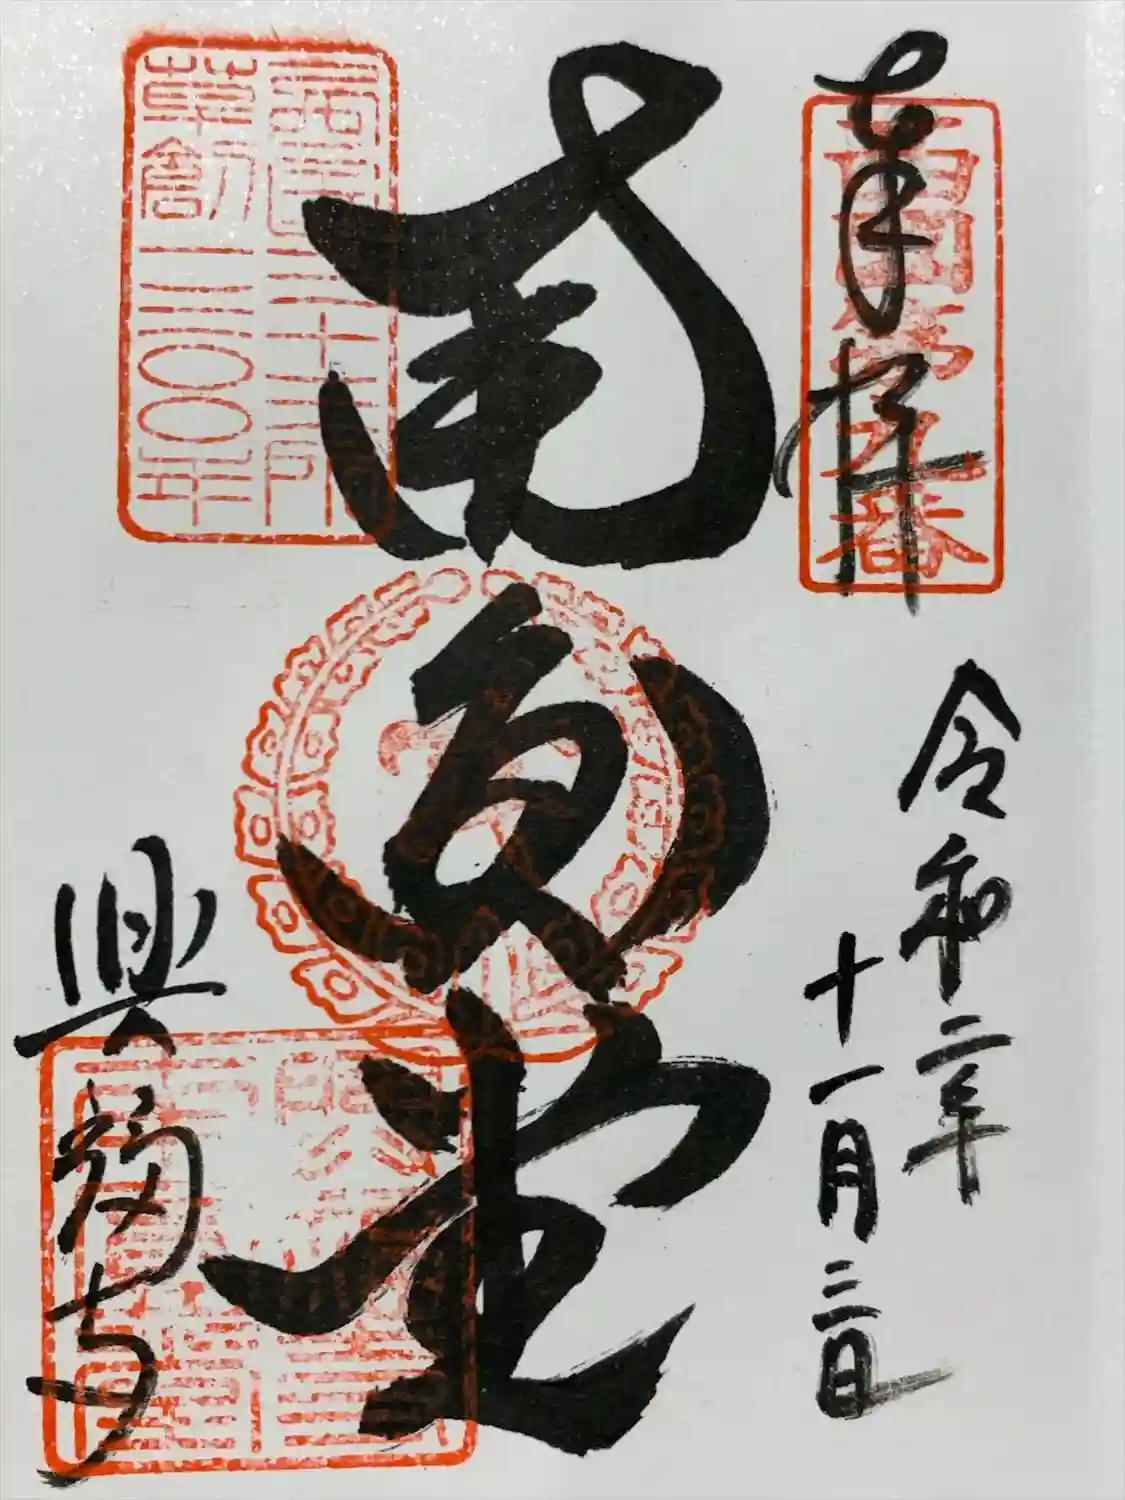 奉拝
西国第九番
令和二年
十一月三日
南円堂
西国三十三所
草創一三〇〇年
興福寺